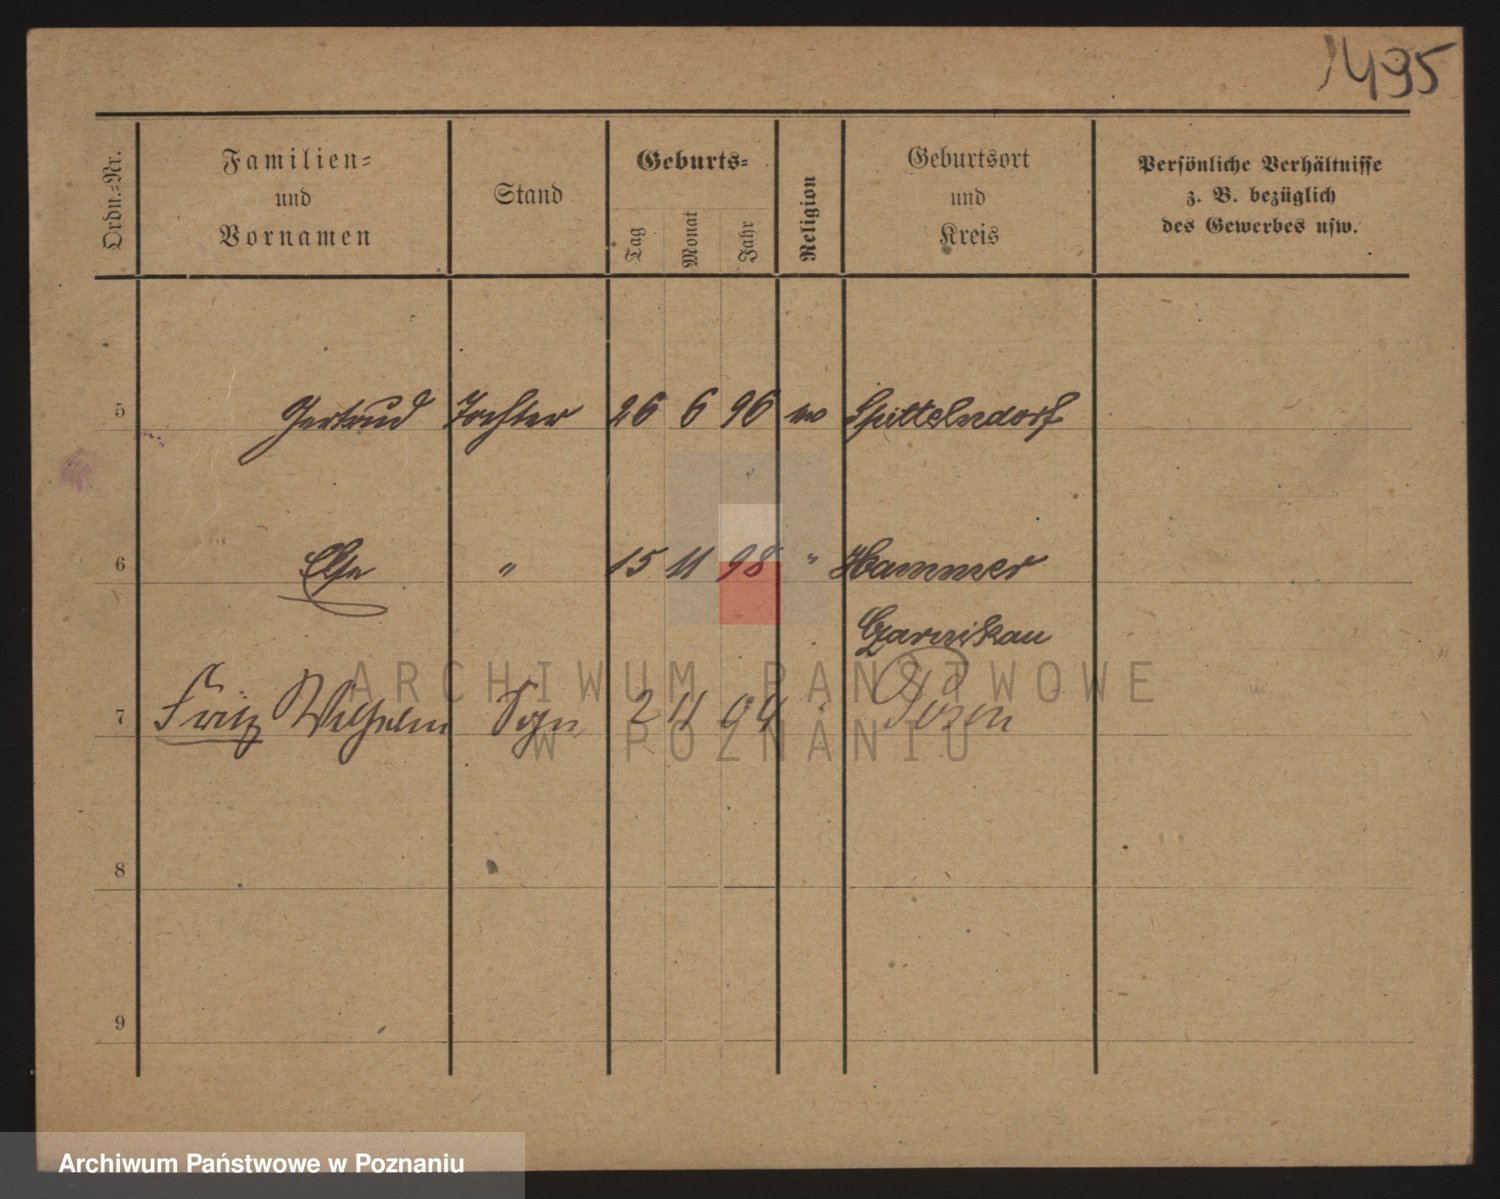 1495
Ordn.-Nr.
Familien-
und
Vornamen
Stand
Geburts-
Tag
Monat
Jahr
Religion
Geburtsort
und
Kreis
Persönliche Verhältnisse
z. B. bezüglich
des Gewerbes usw.
5 Gertrud Tochter 26 6 96 Spittelndorf
6 Else " 15 11 98 " Hammer
Czarnikau
7 Fritz Wilhelm Sohn 2 11 04 Posen
8
9
ARCHIWUM PAŃSTWOWE
W POZNANIU
Archiwum Państwowe w Poznaniu